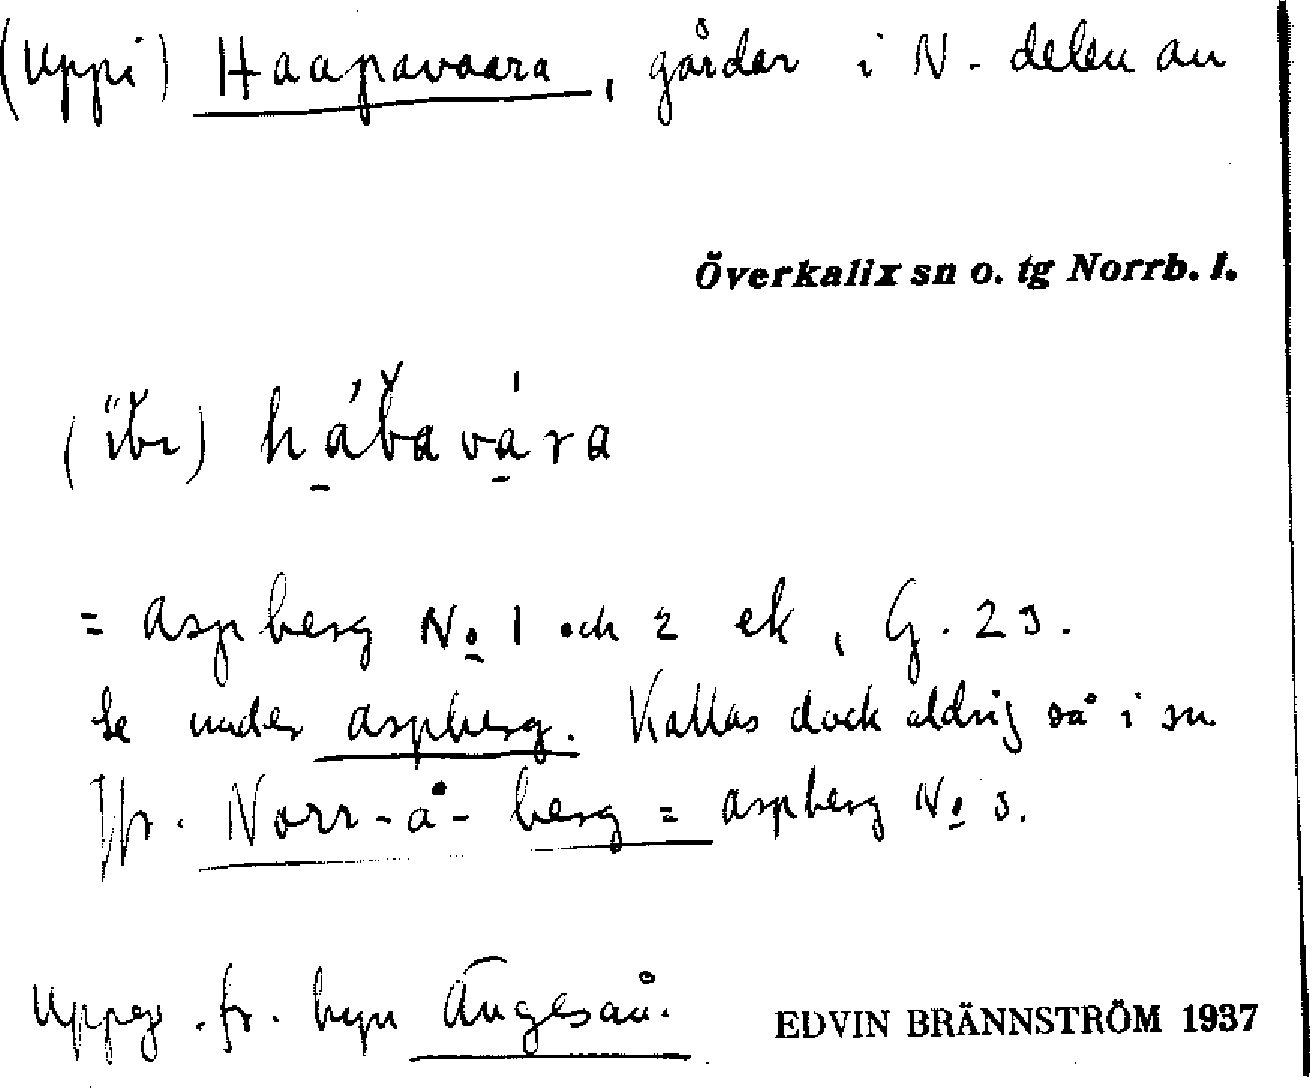 (uppi) Haapavaara, gårdar i N. delen av
Överkalix sn o. tg Norrb. l.
= Aspberg No 1 och 2 ek, G. 23.
Se under Aspberg. Kallas dock aldrig så i sn
Jfr. Norr-å-berg = Aspberg No 3.
Uppg. fr. byn Ängesån.
EDVIN BRÄNNSTRÖM 1937